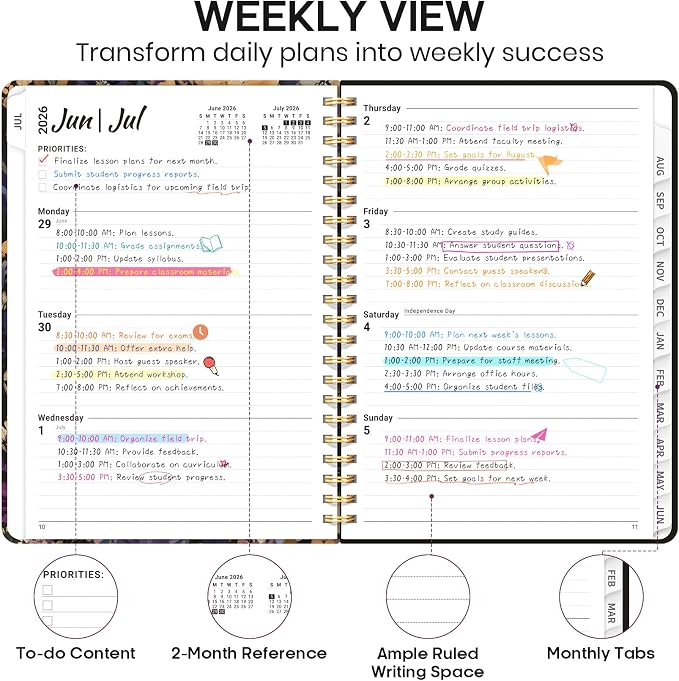 WEEKLY VIEW
Transform daily plans into weekly success
JUL
2026
Jun | Jul
June 2026
July 2026
S M T W T F S
S M T W T F S
PRIORITIES:
Finalize lesson plans for next month.
Submit student progress reports.
Coordinate logistics for upcoming field trip
Monday
29
June
8:00-10:00 AM: Plan lessons.
10:00-11:30 AM: Grade assignments.
1:00-2:00 PM: Update syllabus.
2:00-4:00 PM: Prepare classroom materia
Tuesday
30
8:30-10:00 AM: Review for exams.
10:00-11:30 AM: Offer extra help.
1:00-2:00 PM: Host guest speaker.
2:30-5:00 PM: Attend workshop.
7:00-8:00 PM: Reflect on achievements.
Wednesday
1
July
9:00-10:00 AM: Organize field trip.
10:30-11:30 AM: Provide feedback.
1:00-3:00 PM: Collaborate on curriculum.
3:30-5:00 PM: Review student progress.
10
Thursday
2
9:00-11:00 AM: Coordinate field trip logistics.
11:30 AM-1:00 PM: Attend faculty meeting.
2:00-3:30 PM: Set goals for August.
4:00-5:00 PM: Grade quizzes.
7:00-8:00 PM: Arrange group activities.
Friday
3
8:30-10:30 AM: Create study guides.
10:30-11:30 AM: Answer student questions.
1:00-3:00 PM: Evaluate student presentations.
3:30-5:00 PM: Contact guest speakers.
7:00-8:00 PM: Reflect on classroom discussion
Saturday
Independence Day
4
9:00-10:00 AM: Plan next week's lessons.
10:30 AM-12:00 PM: Update course materials.
1:00-2:00 PM: Prepare for staff meeting.
2:30-3:30 PM: Arrange office hours.
4:00-5:00 PM: Organize student files.
Sunday
5
9:00-11:00 AM: Finalize lesson plans.
11:30 AM-1:00 PM: Submit progress reports.
2:00-3:00 PM: Review feedback.
3:30-4:00 PM: Set goals for next week.
11
AUG
SEP
OCT
NOV
DEC
JAN
FEB
MAR
APR
MAY
JUN
PRIORITIES:
June 2026
S M T W T F S
FEB
MAR
To-do Content
2-Month Reference
Ample Ruled
Writing Space
Monthly Tabs